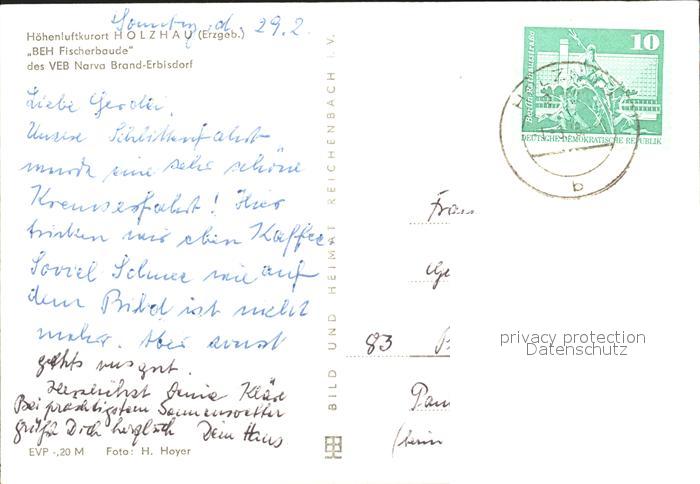 Sonntag, d. 29.2.
Höhenluftkurort HOLZHAU (Erzgeb.)
„BEH Fischerbaude"
des VEB Narva Brand-Erbisdorf
Liebe
Unsere Schlittenfahrt
wurde eine sehr schöne
Kremserfahrt! Hier
trinken wir eben Kaffee
Soviel Schnee wie auf
dem Bild ist nicht
mehr. Aber sonst
gehts uns gut.
Herzlichst Deine Kläre
Bei prächtigstem Sonnenwetter
grüßt Dich herzlich Dein Hans
EVP -,20 M Foto: H. Hoyer
BILD UND HEIMAT REICHENBACH I. V.
10
Berlin, Rathausstraße
DEUTSCHE DEMOKRATISCHE REPUBLIK
HOLZHAU
b
83
privacy protection
Datenschutz